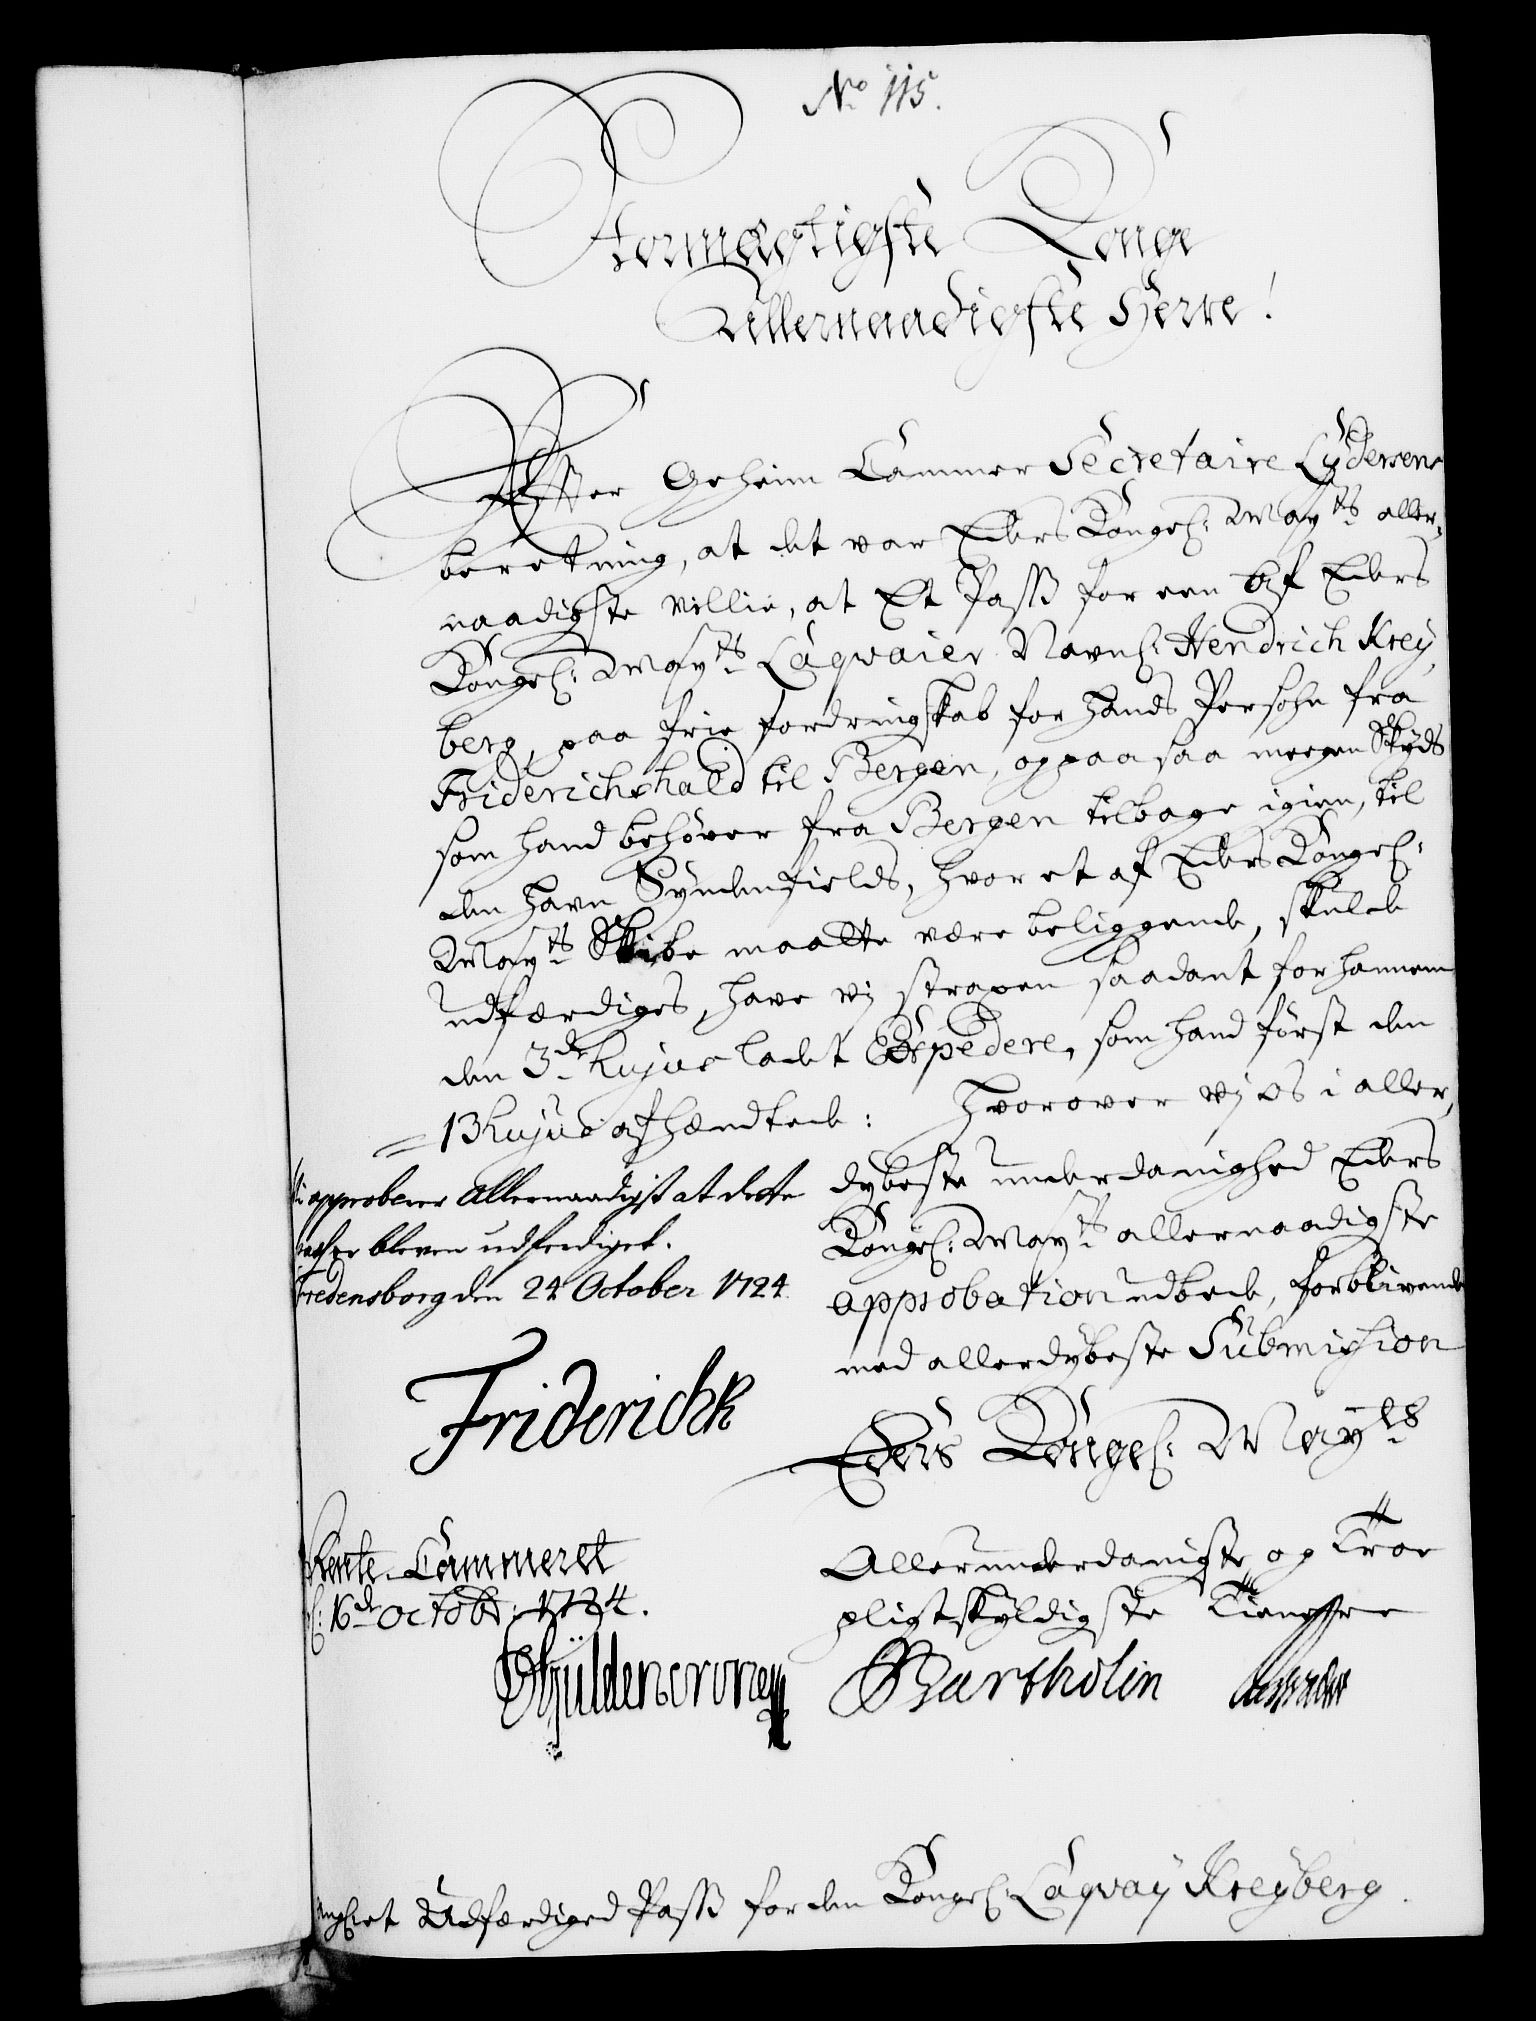 No 115.
Stormægtigste Konge
Allernaadigste Herre!
Effter Geheim Cammer Secretaire Lÿdersens
beretning, at det var Eders Kongel: Mayts aller,
naadigste villie, at Et Pass for een af Eders
Kongel: Mayts Laqvaier Navnl: Hendrich Kreÿ,
berg, paa frie fordringskab for hands Persohn fra
Friderichshald til Bergen, og paa saa meegen Skÿds
som hand behøver fra Bergen tilbage igien, til
den Havn Syndenfields, hvor et af Eders Kongel:
Mayts Skibe maatte være beliggende, skulde
udfærdiges, have vj straxen saadant for hannem
den 3de hujus ladet Expedere, som hand først den
13 hujus afhændtede: Hvorover vj os i aller,
dybeste underdanighed Eders
Kongel: Mayts allernaadigste
approbation udbede, forblivende
med allerdybeste Submission
Eders Kongel: Mayts
Allerunderdanigste og Troe
pligtskÿldigste Tienere
Vi approberer Allernaadigst at dette
pass er bleven udferdiget.
Fredensborg den 24 October 1724
Friderich R
Rente Cammeret
d: 16de Octobr: 1724.
Güldencrone Bartholin
angl: et Udfærdiged Pass for den Kongel: Laqvaÿ Kreÿberg.